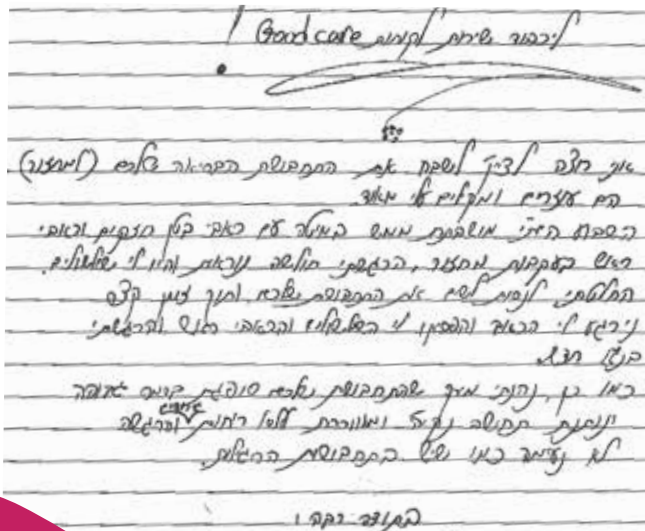 לכבוד שירות לקוחות Good care!
אני רוצה לציין לשבח את התחבושת הבריאה שלכם (למחזור)
הם עוזרים ומקלים עלי מאוד.
השבוע הייתי מושבתת ממש במיטה עם כאבי בטן חזקים וכאבי
ראש בעקבות מחזור, הרגשתי חולשה נוראית והיו לי שלשולים.
החלטתי לנסות לשים את התחבושת שלכם ותוך זמן קצר
נירגע לי הכאב והפסקו לי השלשולים והכאבי ראש והרגשתי
בנאדם חדש.
כמו כן, נהנתי מכך שהתחבושת שלכם סופגת ברמה גבוהה
ונותנת תחושה נקיה ומאווררת ללא ריחות והרגשה
לא נעימה כמו שיש בתחבושות הרגילות.
בתודה רבה!